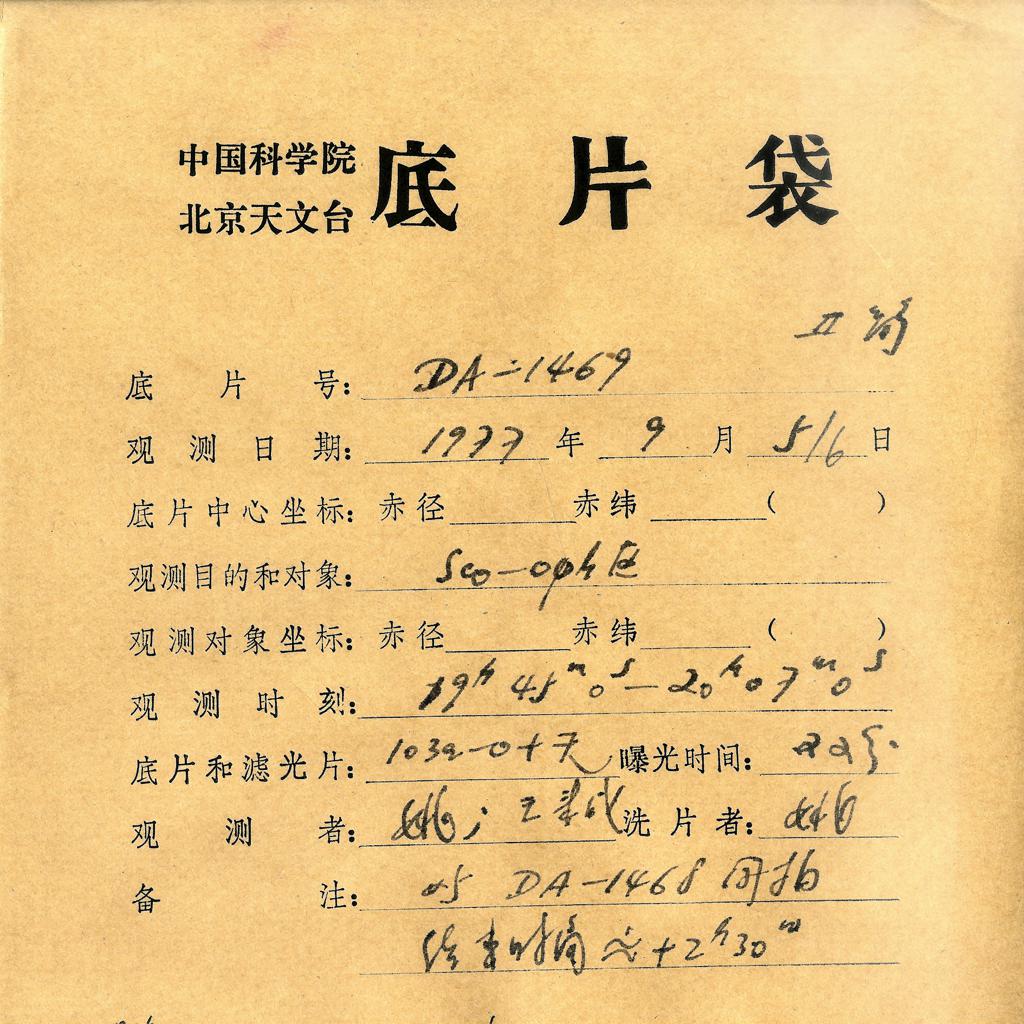 中国科学院
北京天文台
底片袋
底片号: DA-1469
观测日期: 1977年 9月 5/6日
底片中心坐标: 赤径 赤纬 ( )
观测目的和对象: Sco-oph区
观测对象坐标: 赤径 赤纬 ( )
观测时刻: 19h 45m 0s — 20h 07m 0s
底片和滤光片: 103a-O+无 曝光时间: 22分
观测者: 姚; 王 洗片者: 姚
备注: 与 DA-1468 同拍
结束时 +2h30m